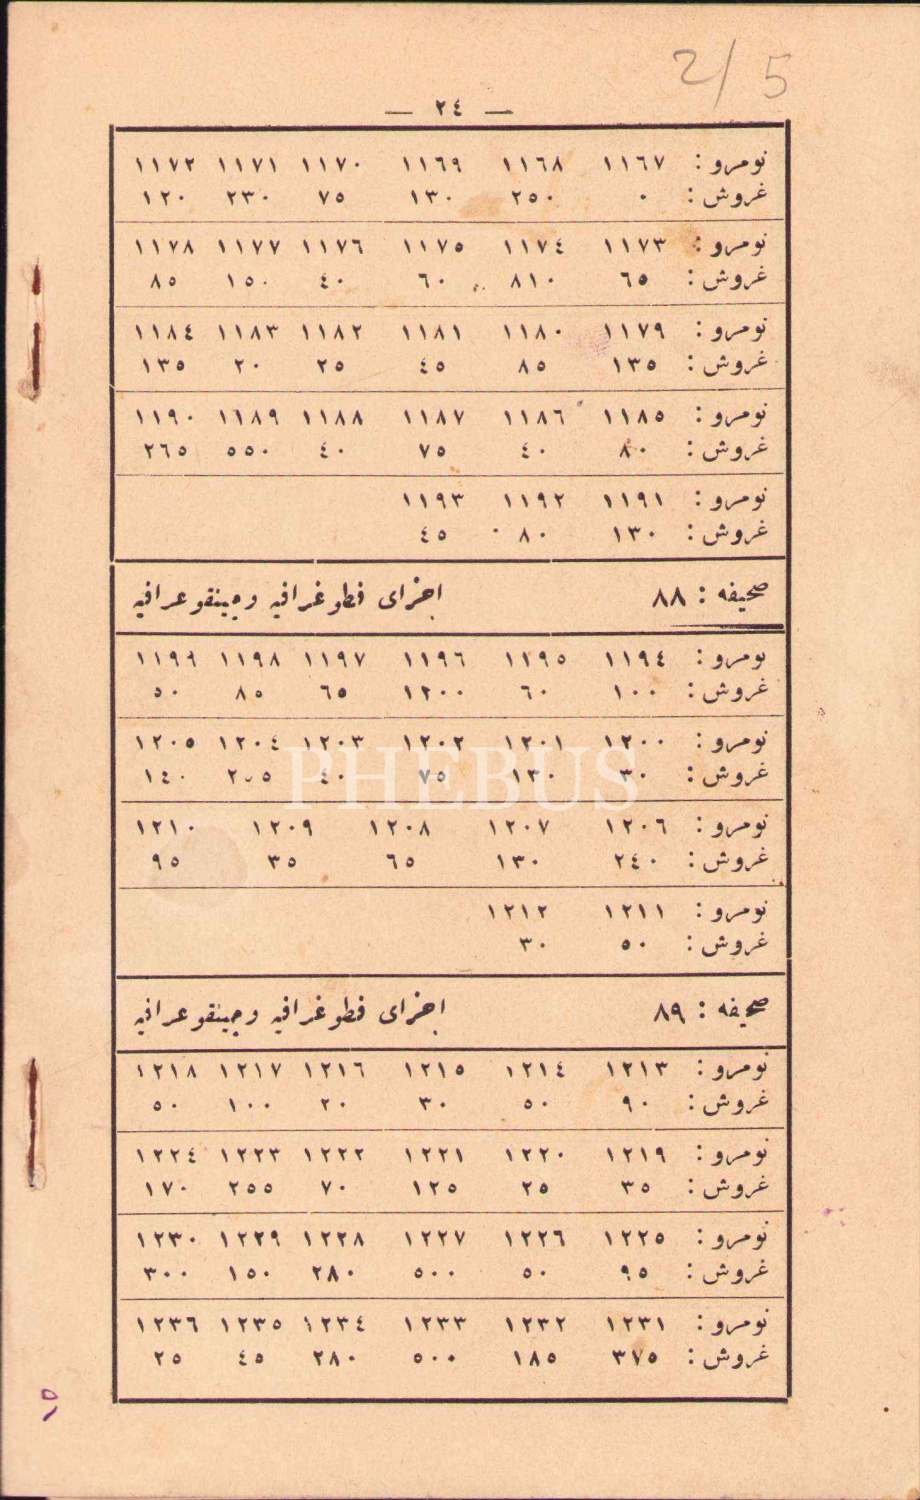 2/5
— ٢٤ —
نومرو : ١١٦٧ ١١٦٨ ١١٦٩ ١١٧٠ ١١٧١ ١١٧٢
غروش : ٠ ٢٥٠ ١٣٠ ٧٥ ٢٣٠ ١٢٠
نومرو : ١١٧٣ ١١٧٤ ١١٧٥ ١١٧٦ ١١٧٧ ١١٧٨
غروش : ٦٥ ٨١٠ ٦٠ ٤٠ ١٥٠ ٨٥
نومرو : ١١٧٩ ١١٨٠ ١١٨١ ١١٨٢ ١١٨٣ ١١٨٤
غروش : ١٣٥ ٨٥ ٤٥ ٢٥ ٢٠ ١٣٥
نومرو : ١١٨٥ ١١٨٦ ١١٨٧ ١١٨٨ ١١٨٩ ١١٩٠
غروش : ٨٠ ٤٠ ٧٥ ٤٠ ٥٥٠ ٢٦٥
نومرو : ١١٩١ ١١٩٢ ١١٩٣
غروش : ١٣٠ ٨٠ ٤٥
صحيفه : ٨٨ اجزای فطوغرافيه وچينقوغرافيه
نومرو : ١١٩٤ ١١٩٥ ١١٩٦ ١١٩٧ ١١٩٨ ١١٩٩
غروش : ١٠٠ ٦٠ ١٢٠٠ ٦٥ ٨٥ ٥٠
نومرو : ١٢٠٠ ١٢٠١ ١٢٠٢ ١٢٠٣ ١٢٠٤ ١٢٠٥
غروش : ٣٠ ١٣٠ ٧٥ ٤٠ ٢٠٥ ١٤٠
PHEBUS
نومرو : ١٢٠٦ ١٢٠٧ ١٢٠٨ ١٢٠٩ ١٢١٠
غروش : ٢٤٠ ١٣٠ ٦٥ ٣٥ ٩٥
نومرو : ١٢١١ ١٢١٢
غروش : ٥٠ ٣٠
صحيفه : ٨٩ اجزای فطوغرافيه وچينقوغرافيه
نومرو : ١٢١٣ ١٢١٤ ١٢١٥ ١٢١٦ ١٢١٧ ١٢١٨
غروش : ٩٠ ٥٠ ٣٠ ٢٠ ١٠٠ ٥٠
نومرو : ١٢١٩ ١٢٢٠ ١٢٢١ ١٢٢٢ ١٢٢٣ ١٢٢٤
غروش : ٣٥ ٢٥ ١٢٥ ٧٠ ٢٥٥ ١٧٠
نومرو : ١٢٢٥ ١٢٢٦ ١٢٢٧ ١٢٢٨ ١٢٢٩ ١٢٣٠
غروش : ٩٥ ٥٠ ٥٠٠ ٢٨٠ ١٥٠ ٣٠٠
نومرو : ١٢٣١ ١٢٣٢ ١٢٣٣ ١٢٣٤ ١٢٣٥ ١٢٣٦
غروش : ٣٧٥ ١٨٥ ٥٠٠ ٢٨٠ ٤٥ ٢٥